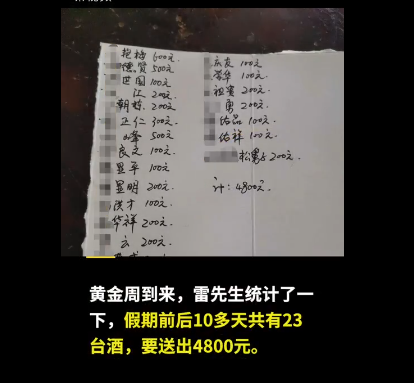 艳梅 600元
德贤 500元
世国 100元
江 200元
朝栋 200元
正仁 300元
峰 500元
良文 100元
显平 100元
显明 200元
洪才 100元
华祥 200元
云 200元
东友 100元
荣华 100元
祖贵 200元
勇 200元
佑品 100元
佑祥 100元
松 200元
计:4800元
黄金周到来,雷先生统计了一
下,假期前后10多天共有23
台酒,要送出4800元。